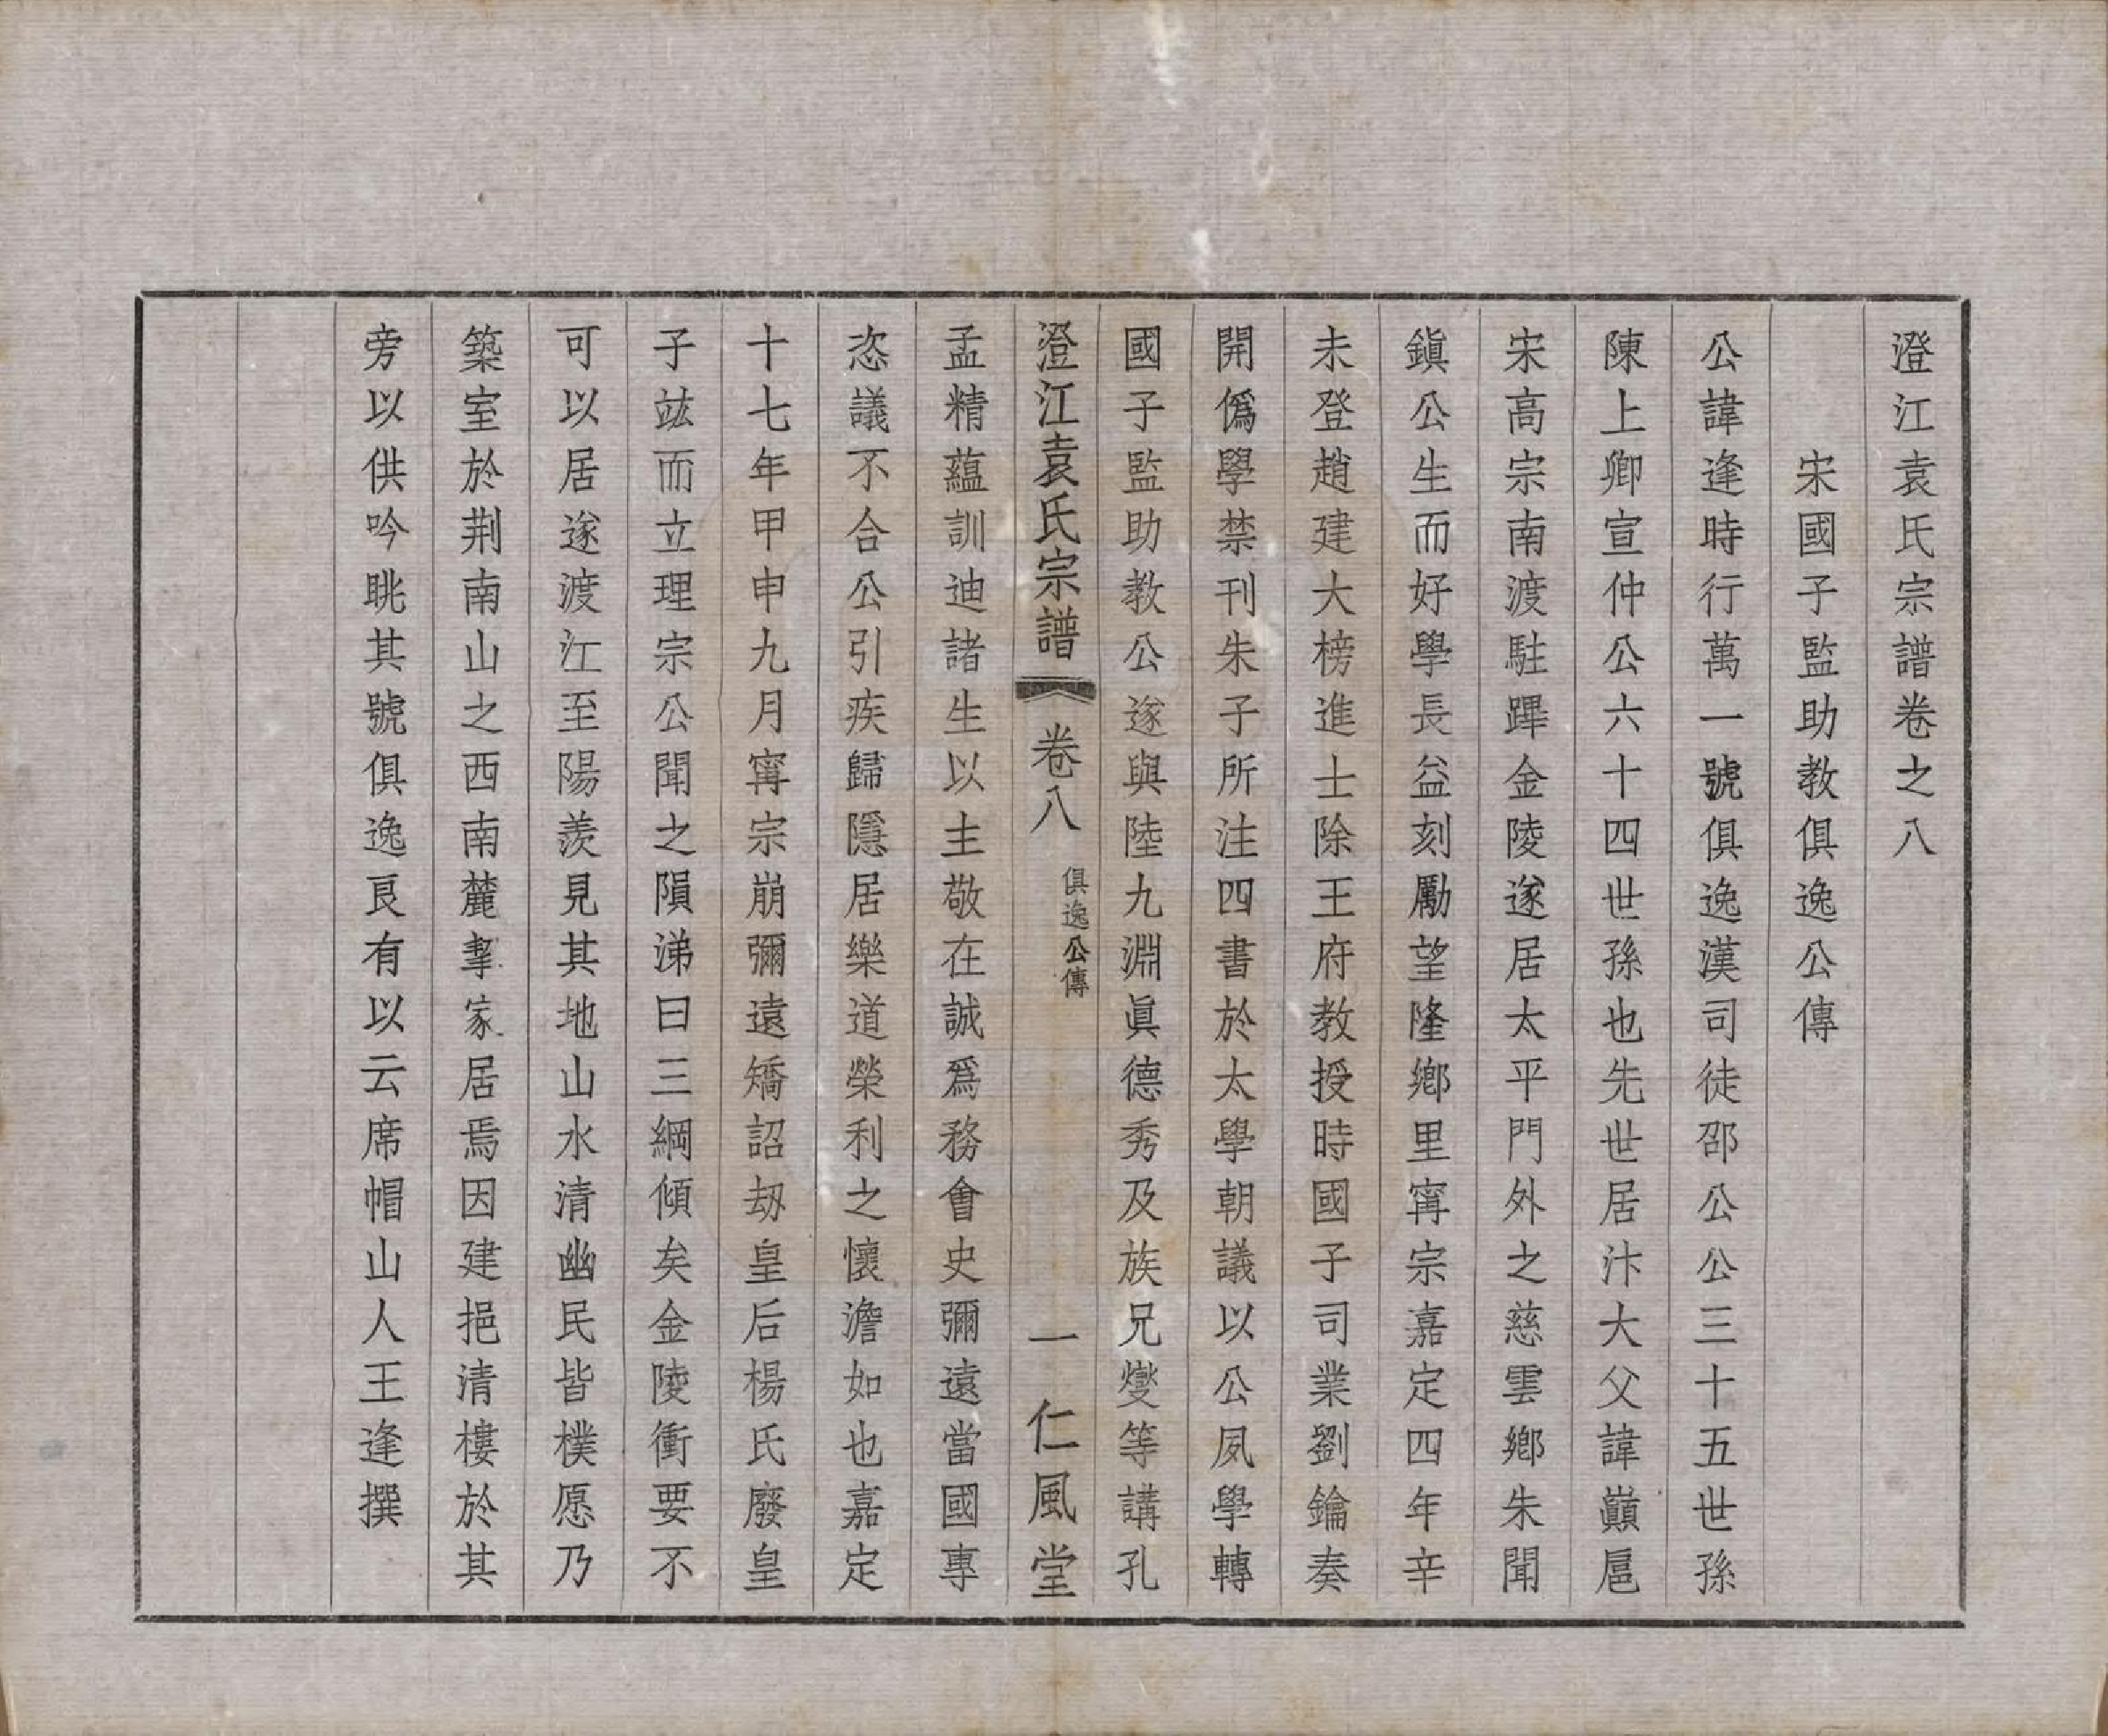 澄江袁氏宗譜卷之八
宋國子監助教俱逸公傳
公諱逢時行萬一號俱逸漢司徒邵公公三十五世孫
陳上卿宣仲公六十四世孫也先世居汴大父諱巔扈
宋高宗南渡駐蹕金陵遂居太平門外之慈雲鄉朱聞
鎭公生而好學長益刻勵望隆鄉里甯宗嘉定四年辛
未登趙建大榜進士除王府教授時國子司業劉鑰奏
開僞學禁刊朱子所注四書於太學朝議以公夙學轉
國子監助教公遂與陸九淵眞德秀及族兄燮等講孔
澄江袁氏宗譜 卷八 俱逸公傳 一 仁風堂
孟精蘊訓迪諸生以主敬在誠爲務會史彌遠當國專
恣議不合公引疾歸隱居樂道榮利之懷澹如也嘉定
十七年甲申九月甯宗崩彌遠矯詔刼皇后楊氏廢皇
子竑而立理宗公聞之隕涕曰三綱傾矣金陵衝要不
可以居遂渡江至陽羨見其地山水清幽民皆樸愿乃
築室於荆南山之西南麓挈家居焉因建挹清樓於其
旁以供吟眺其號俱逸良有以云席帽山人王逢撰